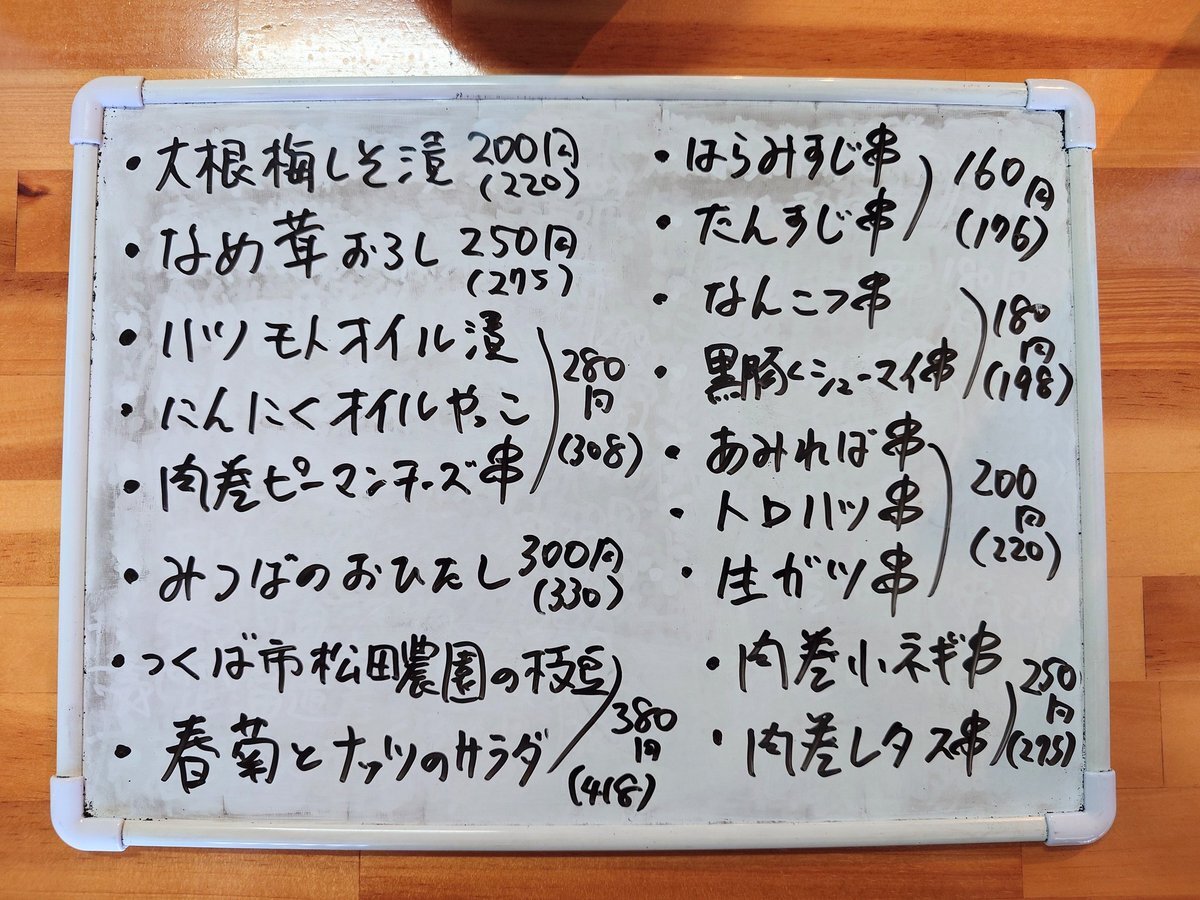 ・大根梅しそ漬 200円
(220)
・なめ茸おろし 250円
(275)
・ハツモトオイル漬
・にんにくオイルやっこ
・肉巻ピーマンチーズ串
280
円
(308)
・みつばのおひたし 300円
(330)
・つくば市松田農園の枝豆
・春菊とナッツのサラダ
380
円
(418)
・はらみすじ串
・たんすじ串
160円
(176)
・なんこつ串
・黒豚シューマイ串
180
円
(198)
・あみれば串
・トロハツ串
・生ガツ串
200
円
(220)
・肉巻小ネギ串
・肉巻レタス串
250
円
(275)